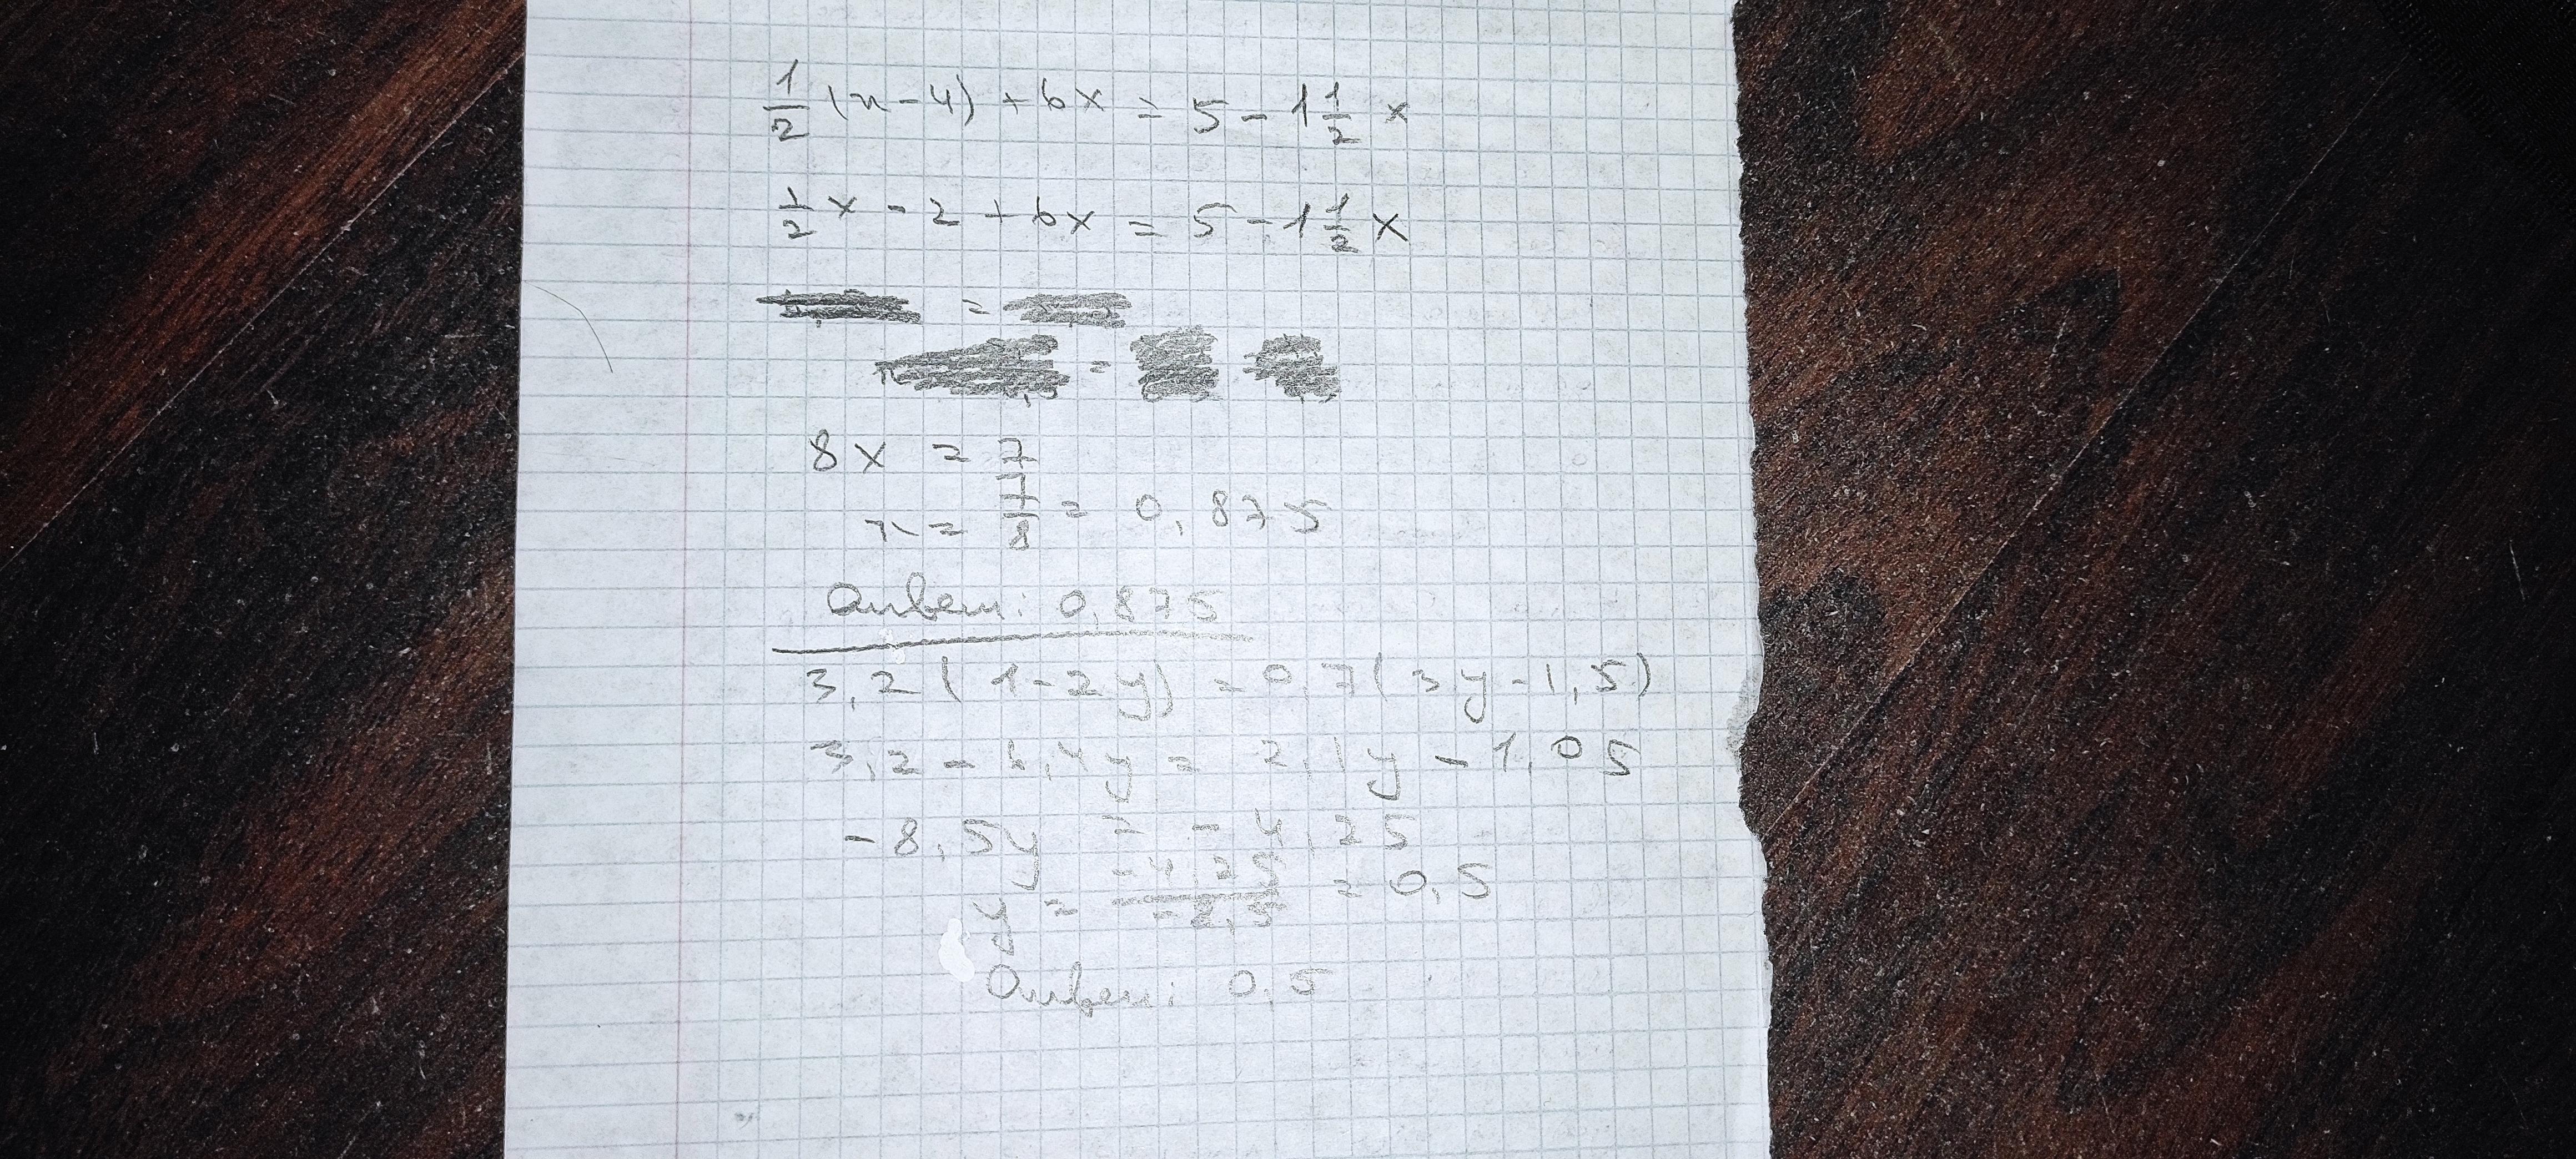 1/2 (x - 4) + 6x = 5 - 1 1/2 x
1/2 x - 2 + 6x = 5 - 1 1/2 x
=
=
8x = 7
x = 7/8 = 0,875
Ответ: 0,875
3,2(1-2y) = 0,7(3y-1,5)
3,2 - 6,4y = 2,1y - 1,05
-8,5y = -4,25
y = -4,25/-8,5 = 0,5
Ответ: 0,5